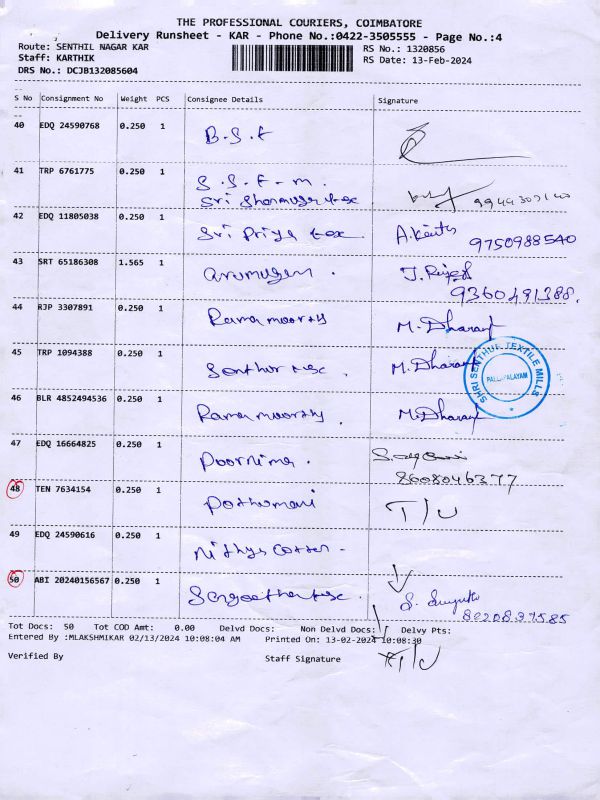 THE PROFESSIONAL COURIERS, COIMBATORE
Delivery Runsheet - KAR - Phone No.:0422-3505555 - Page No.:4
Route: SENTHIL NAGAR KAR RS No.: 1320856
Staff: KARTHIK RS Date: 13-Feb-2024
DRS No.: DCJB132085604
S No Consignment No Weight PCS Consignee Details Signature
40 EDQ 24590768 0.250 1 B.S.f
41 TRP 6761775 0.250 1 S.S.F.m.
Sri Shanmuga tex
42 EDQ 11805038 0.250 1 Sri Priya tex
9750988540
43 SRT 65186308 1.565 1 arumugam.
9360491388.
44 RJP 3307891 0.250 1 Ramamoorthy M. Dharani
45 TRP 1094388 0.250 1 Senthur tex. M. Dharani
SHRI SENTHUR TEXTILE MILLS
PALLAPALAYAM
46 BLR 4852494536 0.250 1 Ramamoorthy M. Dharani
47 EDQ 16664825 0.250 1 Poornima.
8608046377
48 TEN 7634154 0.250 1 Pothumani T/U
49 EDQ 24590616 0.250 1 Nithya Cotton -
50 ABI 20240156567 0.250 1 Sangeetha tex.
8220837585
Tot Docs: 50 Tot COD Amt: 0.00 Delvd Docs: Non Delvd Docs: Delvy Pts:
Entered By :MLAKSHMIKAR 02/13/2024 10:08:04 AM Printed On: 13-02-2024 10:08:30
Verified By Staff Signature